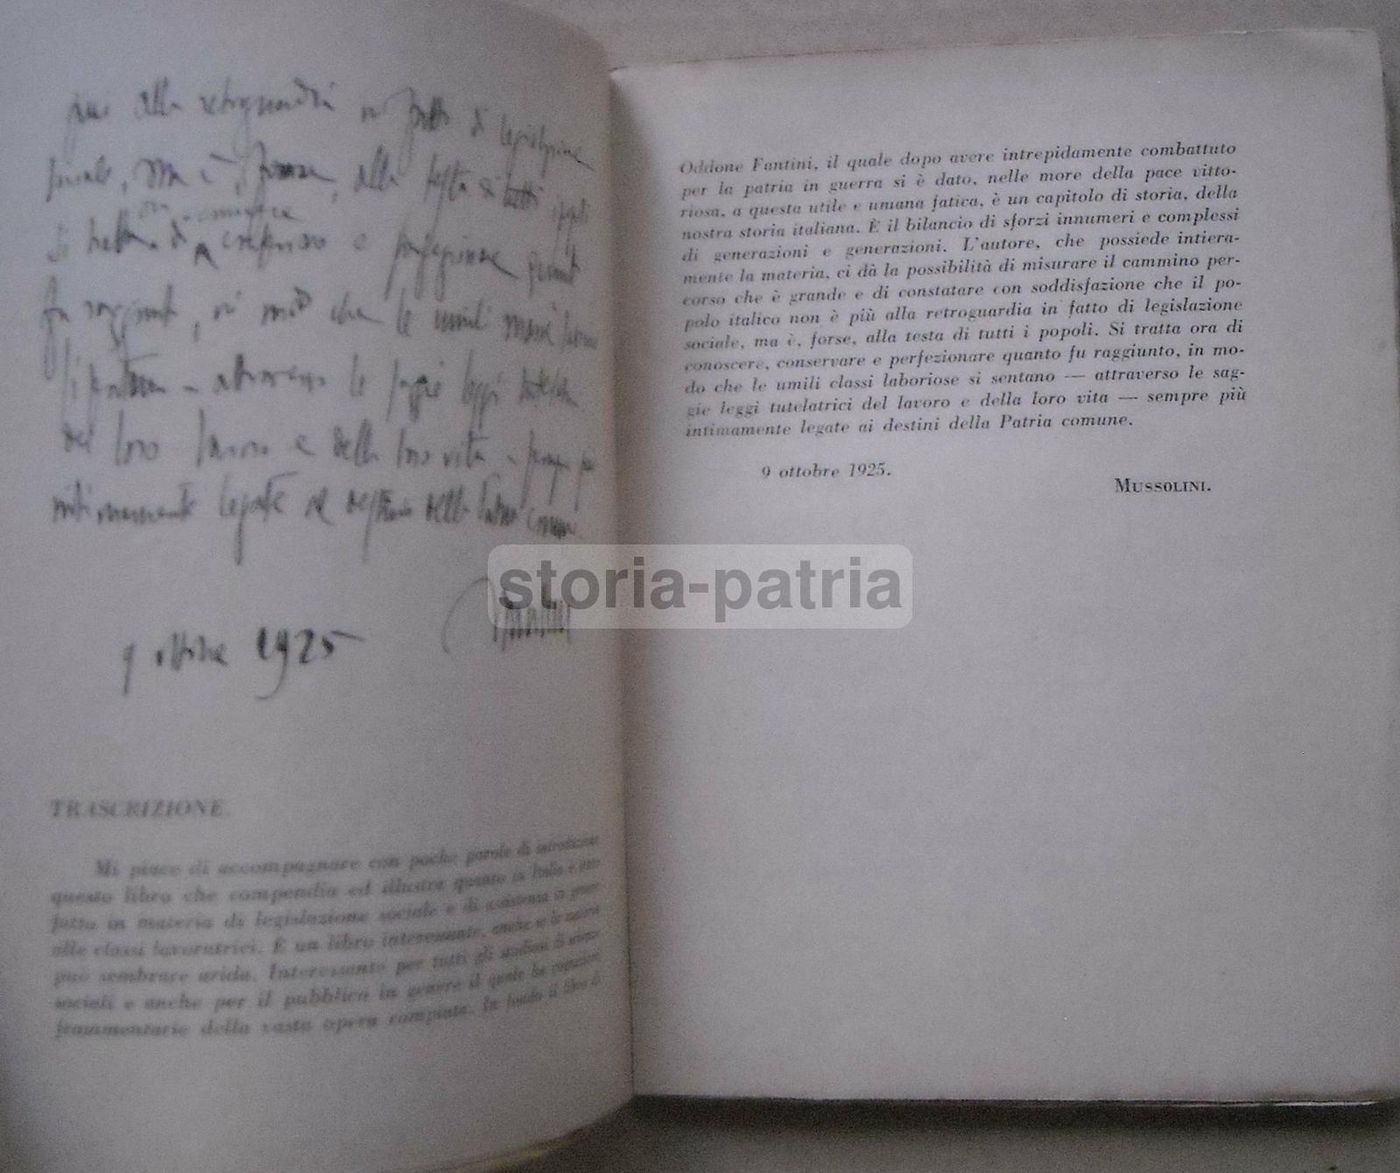 più alla retroguardia in fatto di legislazione
sociale, ma è, forse, alla testa di tutti i popoli.
Si tratta di conoscere
conservare e perfezionare quanto
fu raggiunto, in modo che le umili classi
si sentano - attraverso le sagge leggi tutelatrici
del loro lavoro e della loro vita - sempre più
intimamente legate ai destini della Patria comune.
9 ottobre 1925
Mussolini
TRASCRIZIONE.
Mi piace di accompagnare con poche parole di introduzione
questo libro che compendia ed illustra quanto in Italia è stato
fatto in materia di legislazione sociale e di assistenza in genere
alle classi lavoratrici. È un libro interessante, anche se la materia
può sembrare arida. Interessante per tutti gli studiosi di scienze
sociali e anche per il pubblico in genere il quale ha cognizioni
frammentarie della vasta opera compiuta. In fondo il libro di
Oddone Fantini, il quale dopo avere intrepidamente combattuto
per la patria in guerra si è dato, nelle more della pace vitto-
riosa, a questa utile e umana fatica, è un capitolo di storia, della
nostra storia italiana. È il bilancio di sforzi innumeri e complessi
di generazioni e generazioni. L'autore, che possiede intiera-
mente la materia, ci dà la possibilità di misurare il cammino per-
corso che è grande e di constatare con soddisfazione che il po-
polo italico non è più alla retroguardia in fatto di legislazione
sociale, ma è, forse, alla testa di tutti i popoli. Si tratta ora di
conoscere, conservare e perfezionare quanto fu raggiunto, in mo-
do che le umili classi laboriose si sentano — attraverso le sag-
gie leggi tutelatrici del lavoro e della loro vita — sempre più
intimamente legate ai destini della Patria comune.
9 ottobre 1925.
MUSSOLINI.
storia-patria